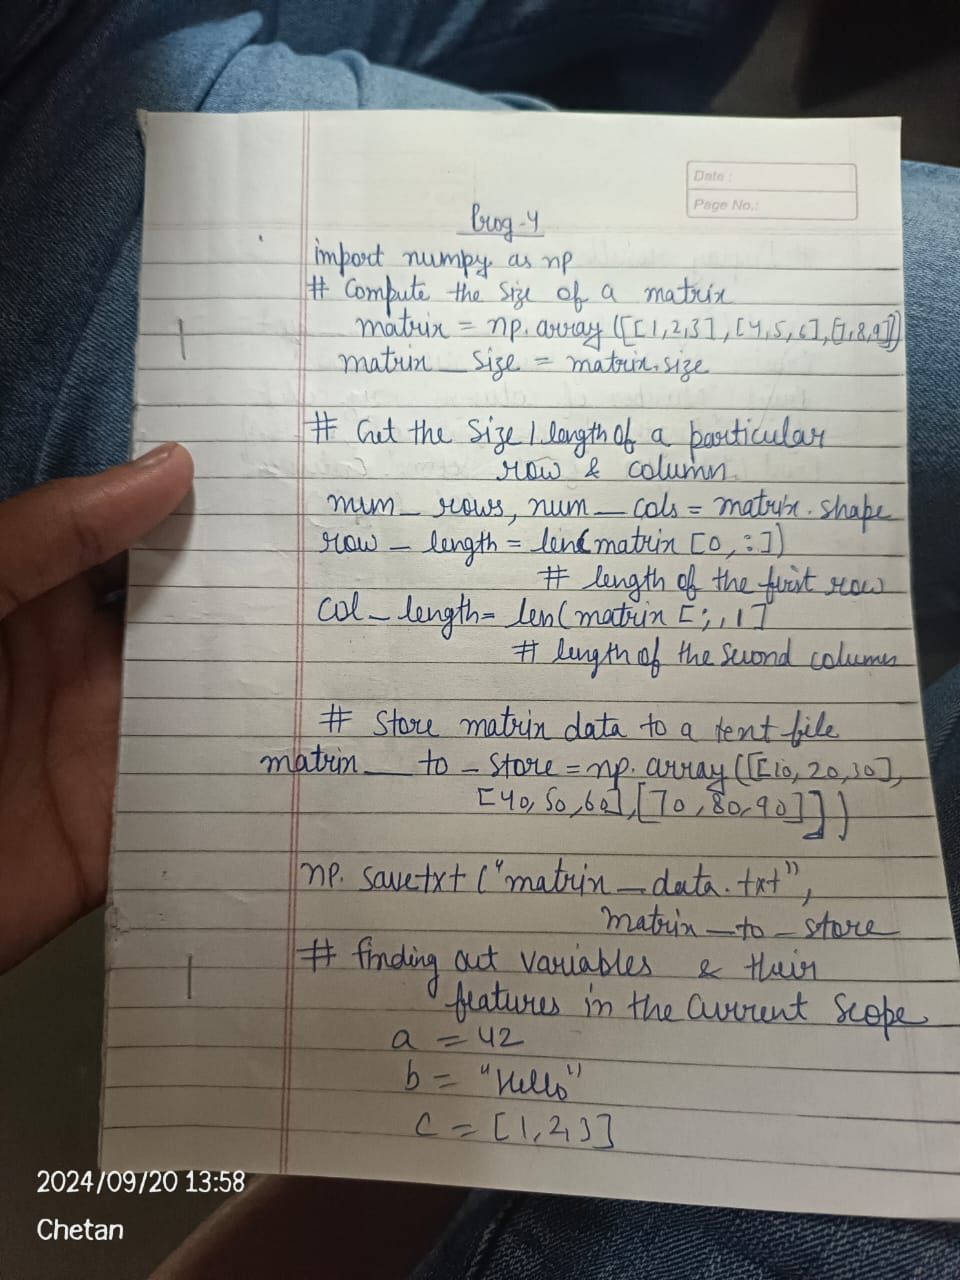 Date :
Page No.:
Prog-4
import numpy as np
# Compute the size of a matrix
matrix = np.array ([[1,2,3],[4,5,6],[7,8,9]])
matrix_size = matrix.size
# Get the size / length of a particular
row & column
num_rows, num_cols = matrix.shape
row_length = len(matrix [0,:])
# length of the first row
col_length= len(matrix [:,1]
# length of the second column
# Store matrix data to a text file
matrix_to_store = np.array([[10,20,30],
[40,50,60],[70,80,90]])
np.savetxt ("matrix_data.txt",
matrix_to_store
# finding out variables & their
features in the current scope
a = 42
b = "Hello"
c = [1,2,3]
2024/09/20 13:58
Chetan